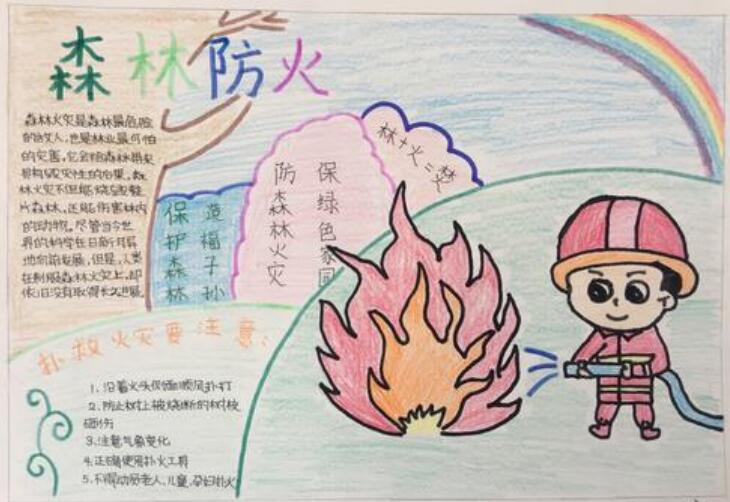 森林防火
森林火灾是森林最危险
的敌人,也是林业最可怕
的灾害,它会给森林带来
最有毁灭性的后果,森
林火灾不但烧毁成
片森林,还能伤害林内
的动物,尽管当今世
界的科学在日新月异
地向前发展,但是,人类
在制服森林火灾上,却
依旧没有取得长久进展。
保护森林
造福子孙
防森林火灾
保绿色家园
林+火=焚
扑救火灾要注意:
1.沿着火头侧面顺风扑打
2.防止树上被烧断的树枝
砸伤
3.注意气象变化
4.正确使用扑火工具
5.不得动员老人,儿童,孕妇扑火